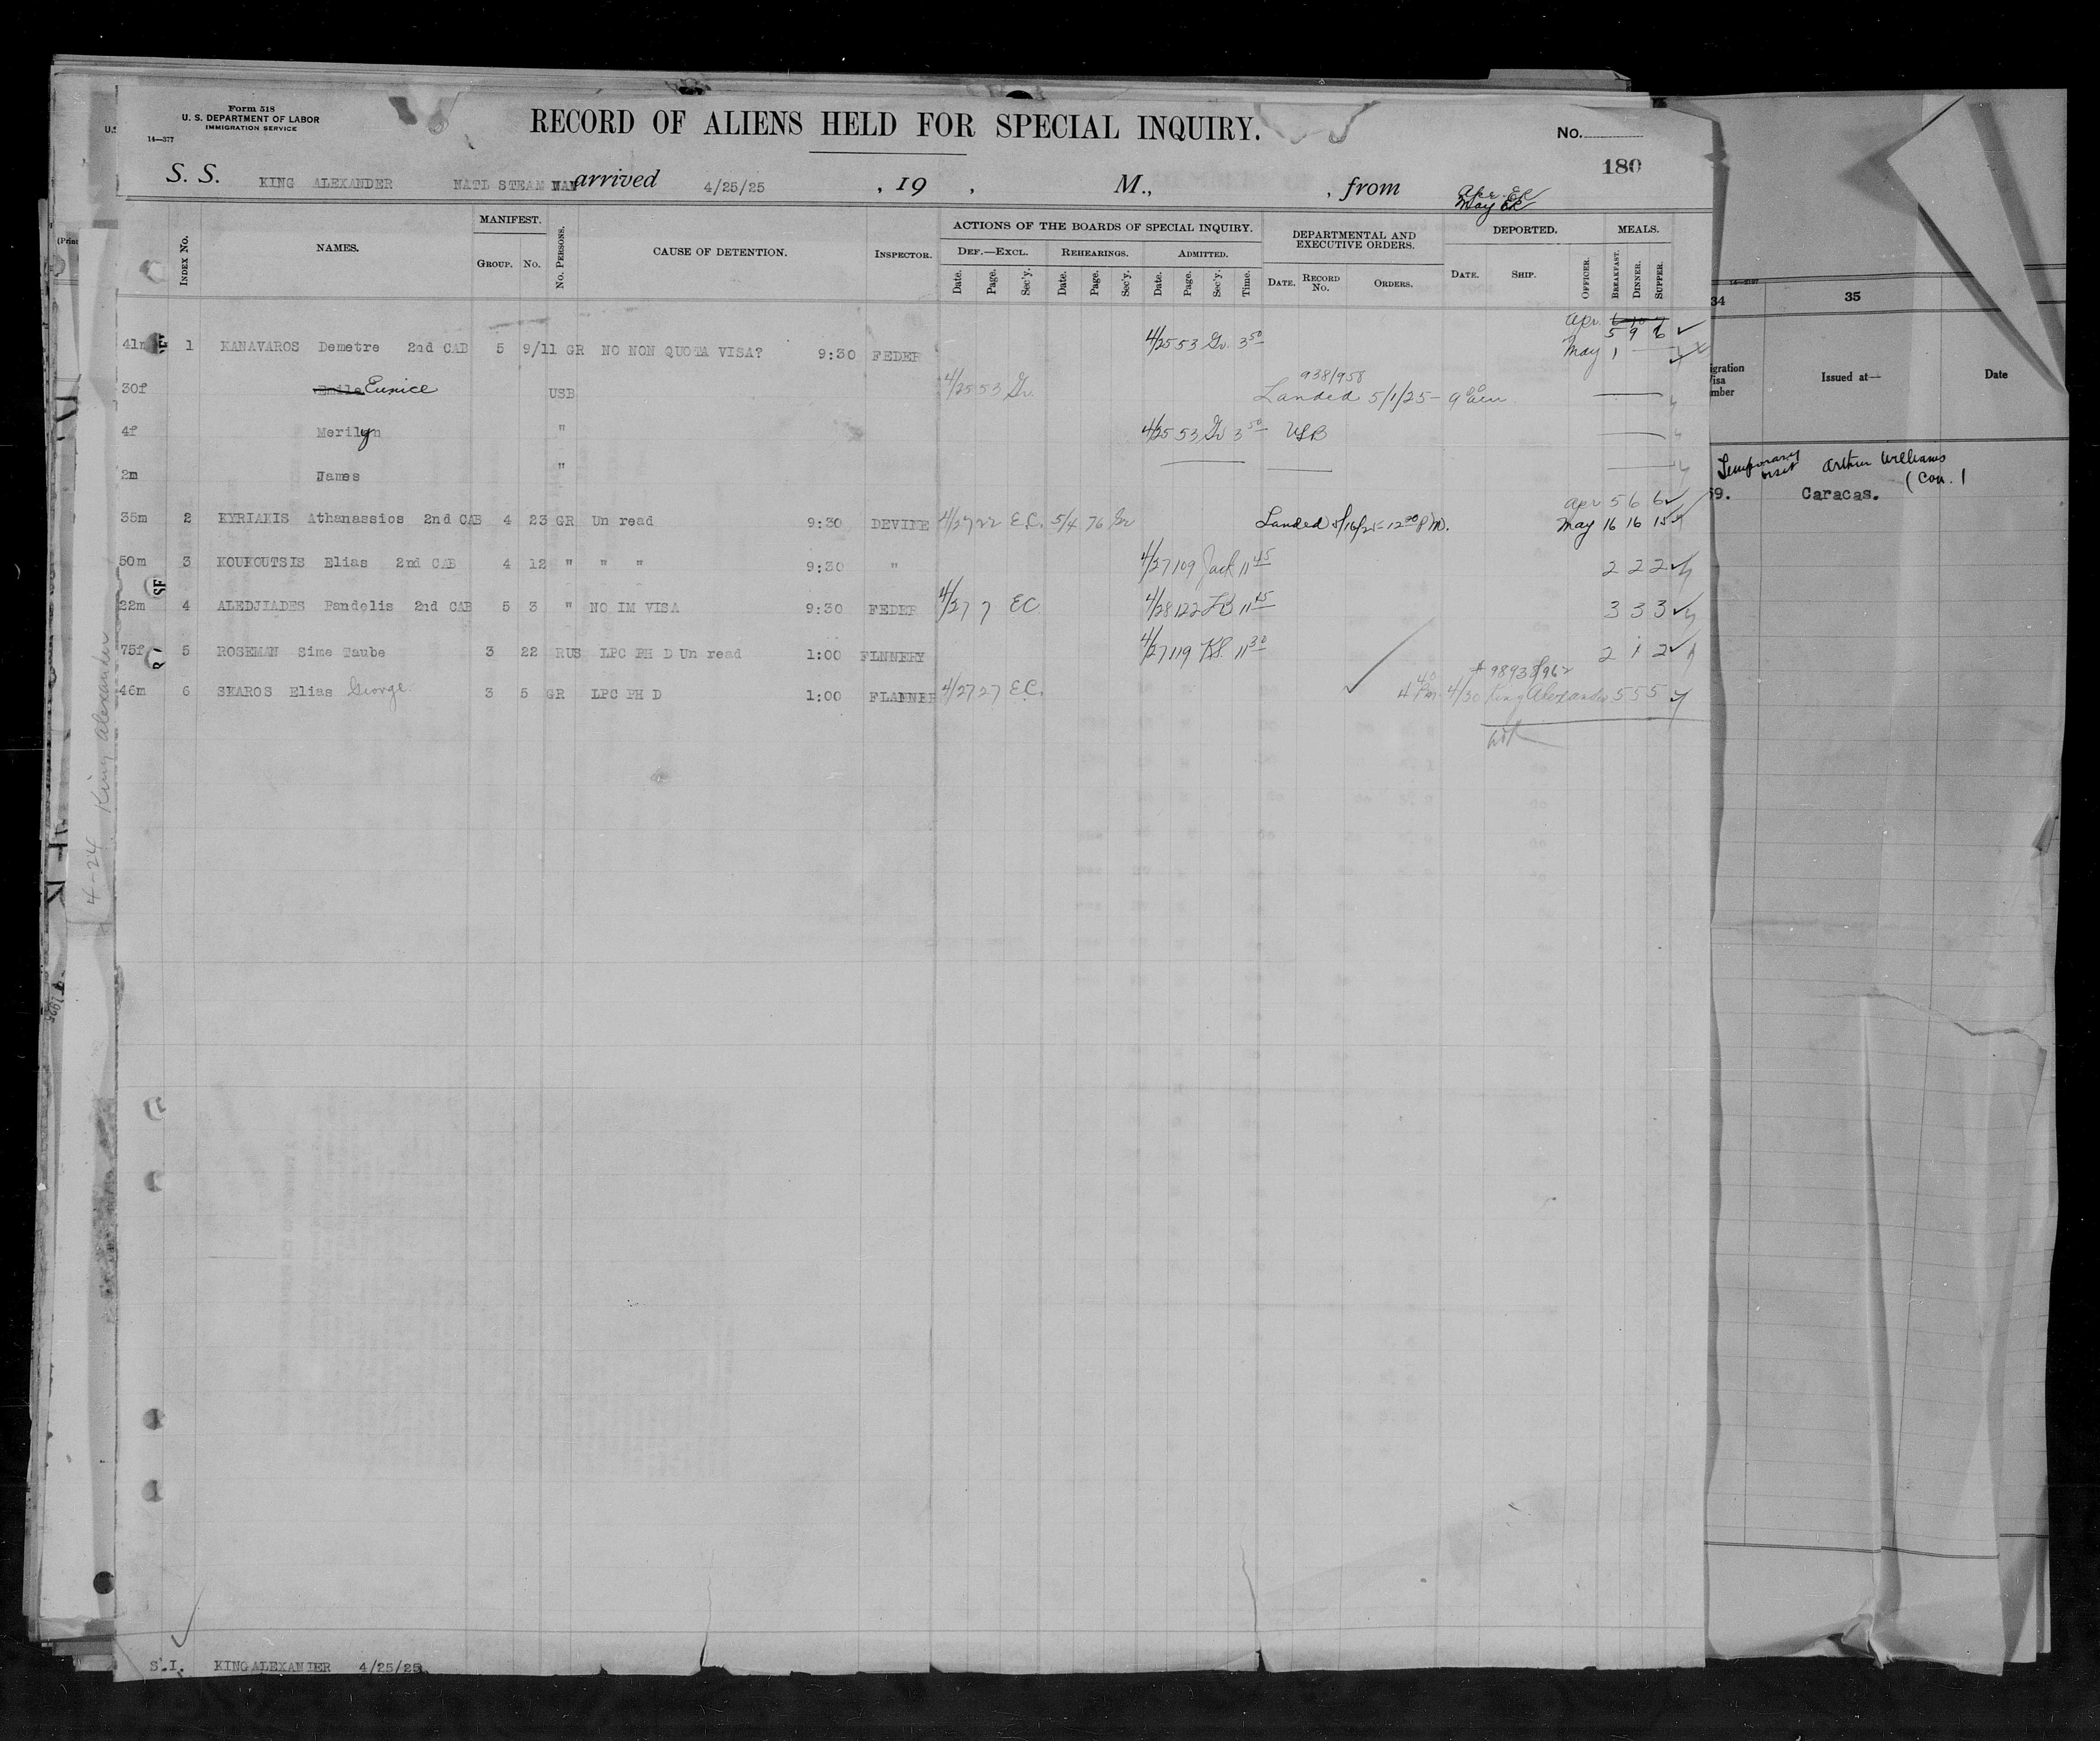 Form 518
U. S. DEPARTMENT OF LABOR
IMMIGRATION SERVICE
14—377
RECORD OF ALIENS HELD FOR SPECIAL INQUIRY.
No.
180
S. S. KING ALEXANDER NATL STEAM NAV arrived 4/25/25 , 19 , M., , from
Apr. ER
May ER
INDEX No. NAMES. MANIFEST. GROUP. No. No. PERSONS. CAUSE OF DETENTION. INSPECTOR.
ACTIONS OF THE BOARDS OF SPECIAL INQUIRY.
DEF.—EXCL. REHEARINGS. ADMITTED.
Date. Page. Sec'y. Date. Page. Sec'y. Date. Page. Sec'y. Time.
DEPARTMENTAL AND EXECUTIVE ORDERS.
DATE. RECORD No. ORDERS.
DEPORTED.
DATE. SHIP. OFFICER.
MEALS.
BREAKFAST. DINNER. SUPPER.
Apr. 5 9 6
41m 1 KANAVAROS Demetre 2nd CAB 5 9/11 GR NO NON QUOTA VISA? 9:30 FEDER 4/25 53 Gr. 3 50
May 1
938/958
30f Emile Eunice USB 4/25 53 Gr. Landed 5/1/25 –
4f Merilyn " 4/25 53 Gr 3 50 USB
2m James "
Apr 5 6 6
35m 2 KYRIAKIS Athanassios 2nd CAB 4 23 GR Un read 9:30 DEVINE 4/27 22 E.C. 5/4 76 Gr Landed 5/16/25 – 12 30 P.M. May 16 16 15
50m 3 KOUKOUTSIS Elias 2nd CAB 4 12 " " " 9:30 " 4/27 109 Jack 11 45 2 2 2
22m 4 ALEDJIADES Pandelis 2nd CAB 5 3 " NO IM VISA 9:30 FEDER 4/27 7 EC 4/28 122 11 45 3 3 3
75f 5 ROSEMAN Sime Taube 3 22 RUS LPC PH D Un read 1:00 FLNNERY 4/27 119 11 30 2 1 2
98938/962
46m 6 SKAROS Elias George 3 5 GR LPC PH D 1:00 FLANNER 4/27 27 E.C. 4 40 Pm. 4/30 King Alexander 5 5 5
4-24 King Alexander
S.I. KING ALEXANDER 4/25/25
34 35
Issued at— Date
Temporary visit Arthur Williams
(Con.
59. Caracas.